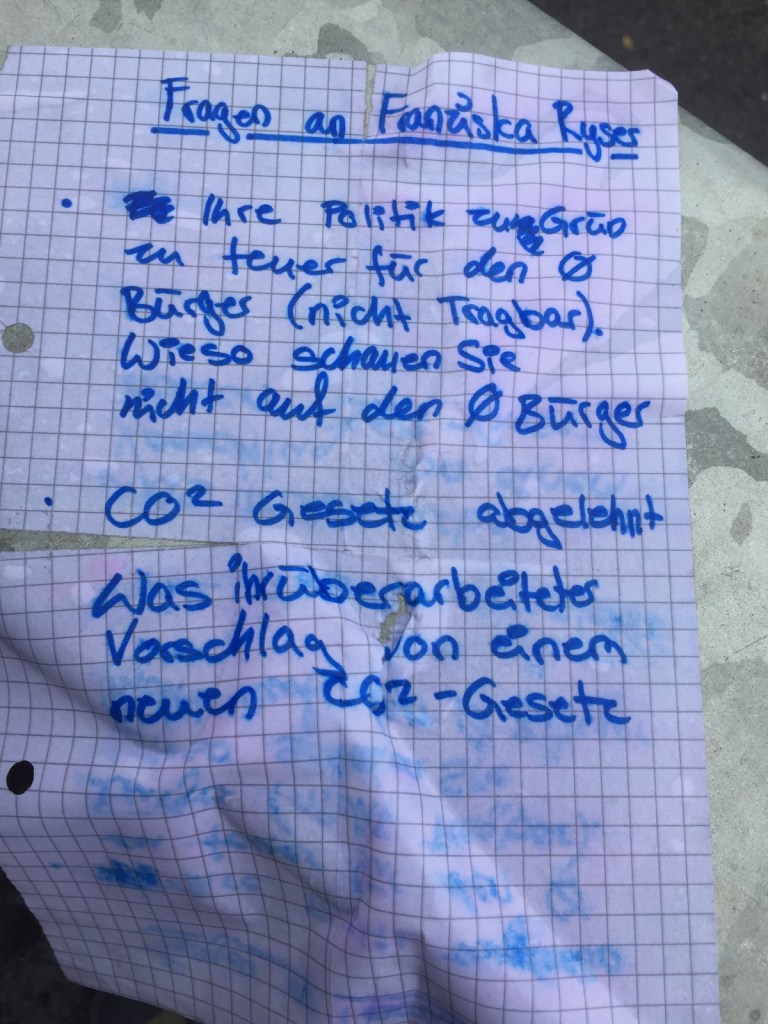 Fragen an Franziska Ryser
• Ihre Politik zu Grün
zu teuer für den Ø
Bürger (nicht Tragbar).
Wieso schauen Sie
nicht auf den Ø Bürger
• CO² Gesetz abgelehnt
Was ihr überarbeiteter
Vorschlag von einem
neuen CO²-Gesetz